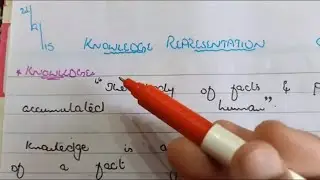 21/9/15 KNOWLEDGE REPRESENTATION
* KNOWLEDGE
of facts &
accumulated human".
Knowledge is a
of a fact